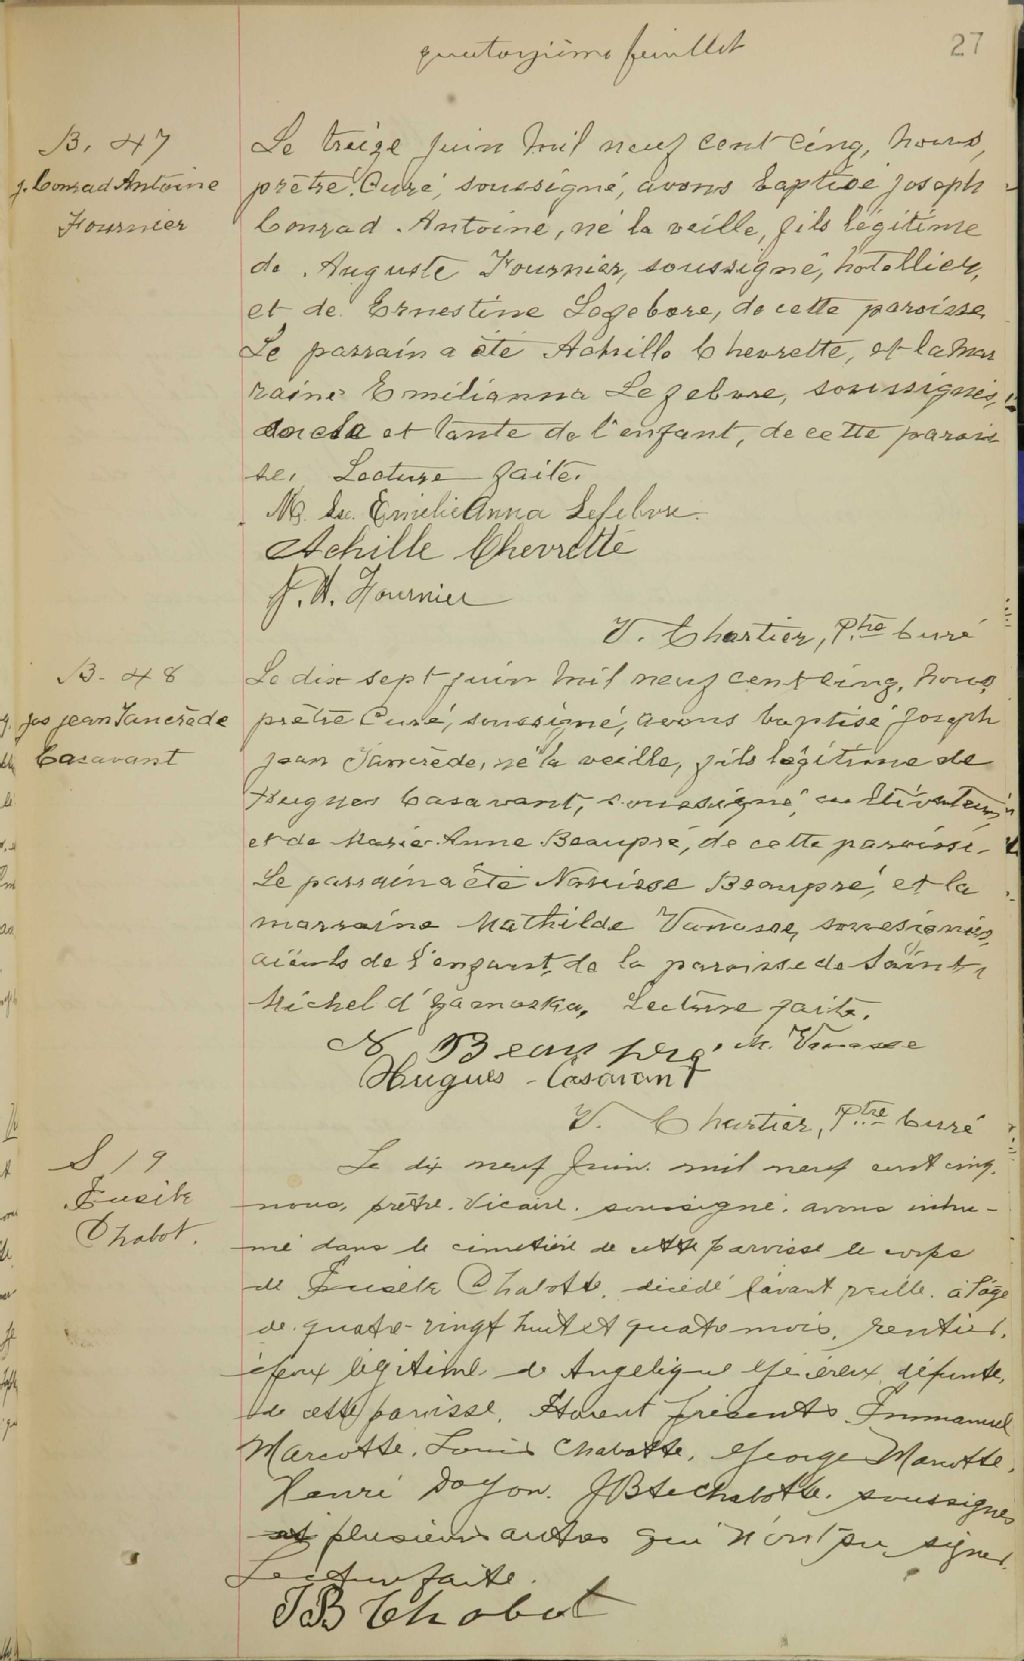 quatorzième feuillet
27
B. 47
J. Conrad Antoine
Fournier
Le treize juin mil neuf cent cinq, nous,
prêtre Curé, soussigné, avons baptisé Joseph
Conrad Antoine, né la veille, fils légitime
de Auguste Fournier, soussigné, hotellier,
et de Ernestine Lefebvre, de cette paroisse.
Le parrain a été Achille Chevrette, et la mar
raine Emilianna Lefebvre, soussignés,
oncle et tante de l'enfant, de cette parois
se. Lecture faite.
Emilieanna Lefebvre.
Achille Chevrette
J. A. Fournier
V. Chartier, Ptre Curé
B. 48
Jos Jean Tancrède
Casavant
Le dix sept juin mil neuf cent cinq, nous,
prêtre Curé, soussigné, avons baptisé Joseph
Jean Tancrède, né la veille, fils légitime de
Hugues Casavant, soussigné, cultivateur,
et de Marie-Anne Beaupré, de cette paroisse.
Le parrain a été Narcisse Beaupré, et la
marraine Mathilde Vanasse, soussignés,
aïeuls de l'enfant, de la paroisse de Saint
Michel d'Yamaska. Lecture faite.
N Beaupré M. Vanasse
Hugues Casavant
V. Chartier, Ptre Curé
S 19
Chabot.
Le dix neuf Juin mil neuf cent cinq,
nous, prêtre Vicaire soussigné, avons inhu-
mé dans le cimetière de cette paroisse le corps
de Chabotte, décédé l'avant veille, à l'âge
de quatre-vingt huit et quatre mois, rentier,
époux légitime de Angelique défunte,
de cette paroisse. Etaient présents Emmanuel
Marcotte, Louis Chabotte, George Marcotte,
Henri Doyon, JBte Chabotte, soussignés
et plusieurs autres qui n'ont pu signer.
Lecture faite.
JB Chabot